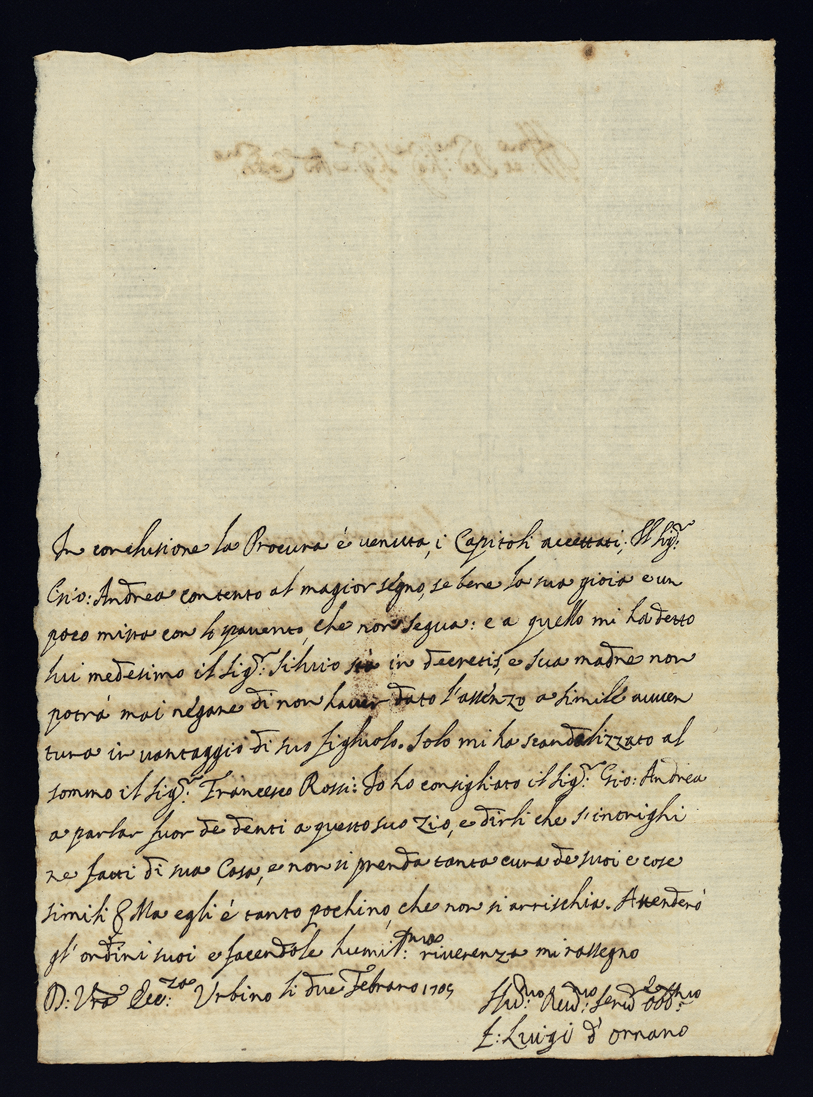 In conclusione la Procura è venuta, i Capitoli accettati; Il Sig.r
Gio: Andrea contento al magior segno, se bene la sua gioia e un
poco mista con lo spavento, che non segua: e a quello mi ha detto
lui medesimo il Sig.r Silvio stà in decretis, e sua madre non
potrà mai negare di non haver dato l'assenzo a simile avven
tura in vantaggio di suo figliuolo. Solo mi ha scandalizzato al
sommo il Sig.r Francesco Rossi: Io ho consigliato il Sig.r Gio: Andrea
a parlar fuor de denti a questo suo Zio, e dirli che s'intrighi
ne fatti di sua Casa, e non si prenda tanta cura de suoi e cose
simili Ma egli é tanto pochino, che non si arrischia. Attenderò
gl'ordini suoi e facendole humil.ma riverenza mi rassegno
D: Vra Ecc:za Urbino li due Febraro 1705
Hu:mo Deu:mo Seru:
F: Luigi d'Ornano